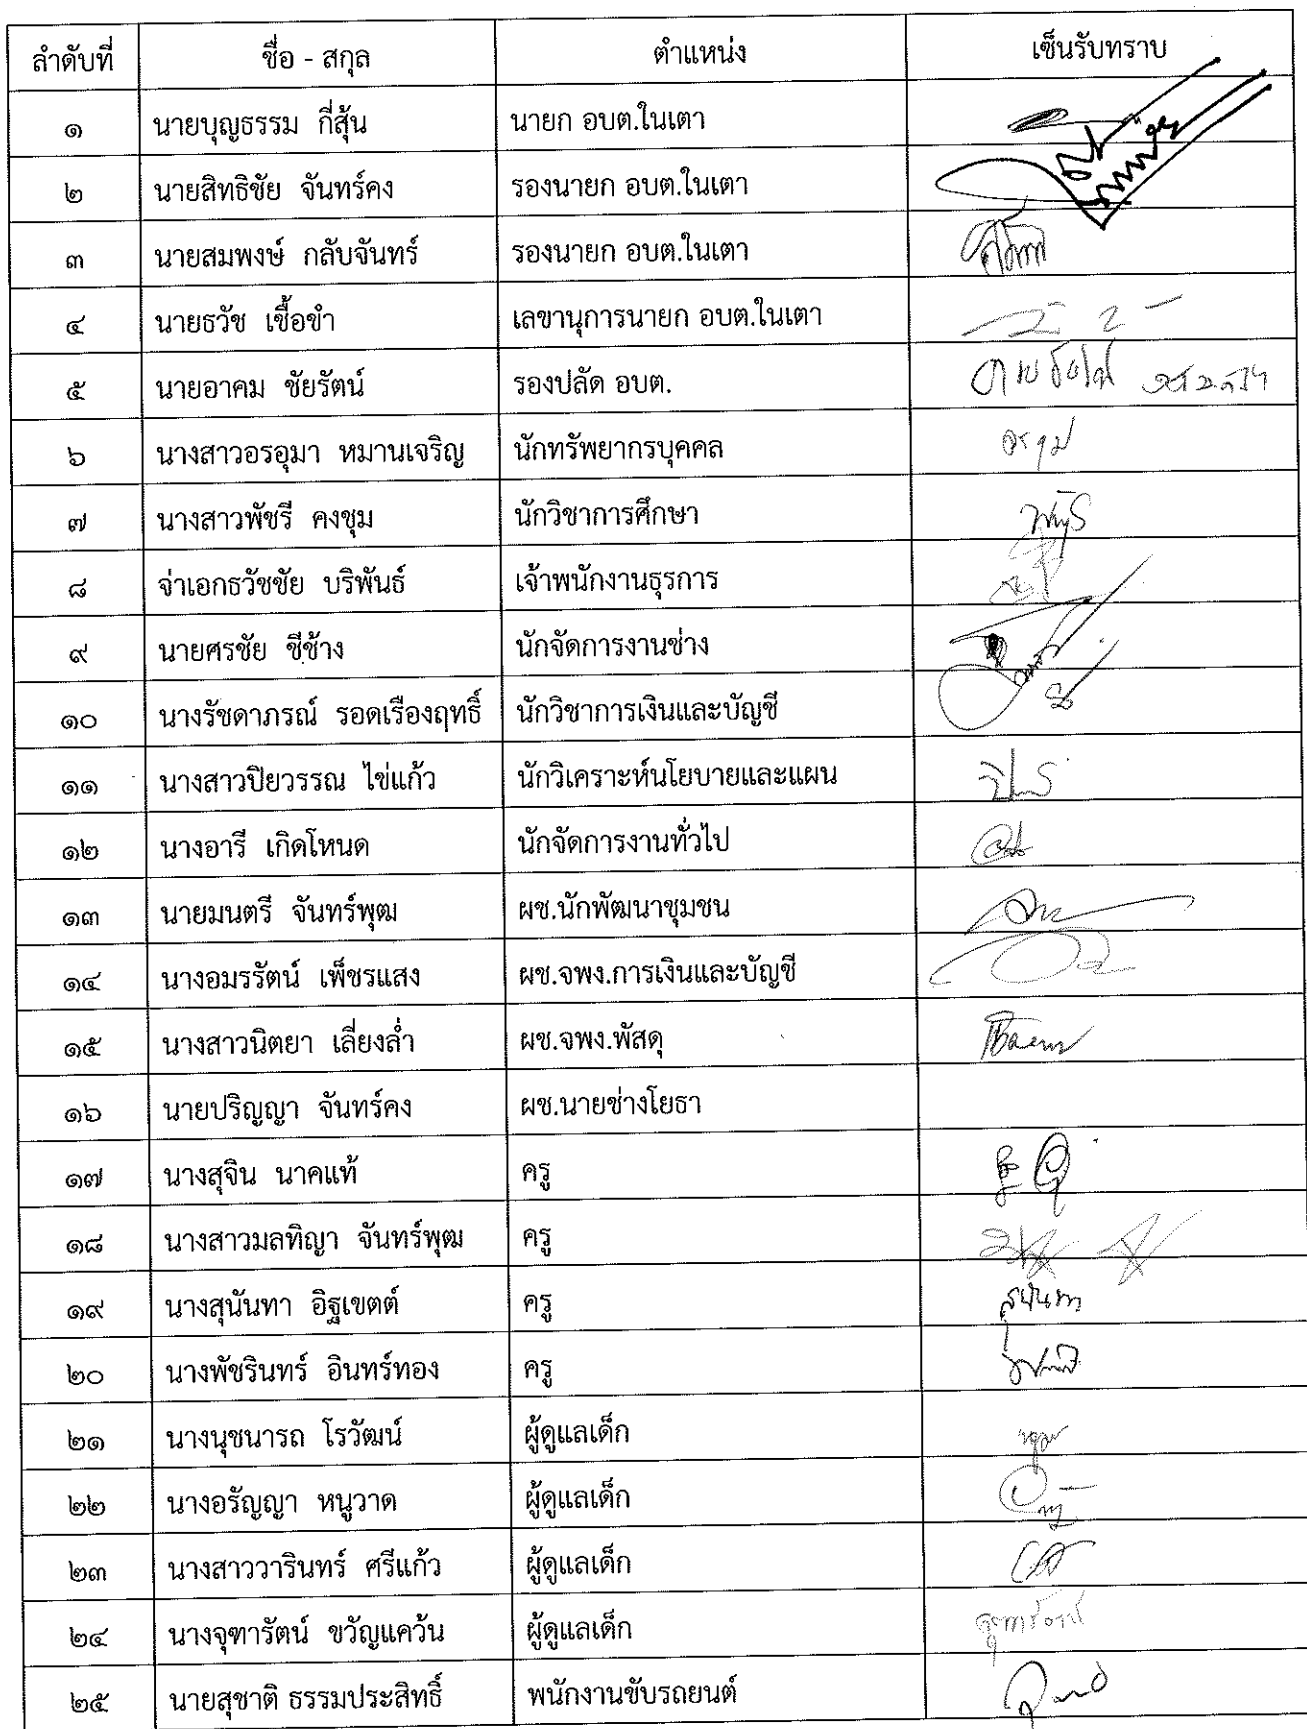 ลำดับที่ ชื่อ - สกุล ตำแหน่ง เซ็นรับทราบ
๑ นายบุญธรรม กี่สุ้น นายก อบต.ในเตา
๒ นายสิทธิชัย จันทร์คง รองนายก อบต.ในเตา
๓ นายสมพงษ์ กลับจันทร์ รองนายก อบต.ในเตา
๔ นายธวัช เชื้อขำ เลขานุการนายก อบต.ในเตา
๕ นายอาคม ชัยรัตน์ รองปลัด อบต.
๖ นางสาวอรอุมา หมานเจริญ นักทรัพยากรบุคคล
๗ นางสาวพัชรี คงชุม นักวิชาการศึกษา
๘ จ่าเอกธวัชชัย บริพันธ์ เจ้าพนักงานธุรการ
๙ นายศรชัย ชีช้าง นักจัดการงานช่าง
๑๐ นางรัชดาภรณ์ รอดเรืองฤทธิ์ นักวิชาการเงินและบัญชี
๑๑ นางสาวปิยวรรณ ไข่แก้ว นักวิเคราะห์นโยบายและแผน
๑๒ นางอารี เกิดโหนด นักจัดการงานทั่วไป
๑๓ นายมนตรี จันทร์พุฒ ผช.นักพัฒนาชุมชน
๑๔ นางอมรรัตน์ เพ็ชรแสง ผช.จพง.การเงินและบัญชี
๑๕ นางสาวนิตยา เลี่ยงล่ำ ผช.จพง.พัสดุ
๑๖ นายปริญญา จันทร์คง ผช.นายช่างโยธา
๑๗ นางสุจิน นาคแท้ ครู
๑๘ นางสาวมลทิญา จันทร์พุฒ ครู
๑๙ นางสุนันทา อิฐเขตต์ ครู สุนันทา
๒๐ นางพัชรินทร์ อินทร์ทอง ครู
๒๑ นางนุชนารถ โรวัฒน์ ผู้ดูแลเด็ก
๒๒ นางอรัญญา หนูวาด ผู้ดูแลเด็ก
๒๓ นางสาววารินทร์ ศรีแก้ว ผู้ดูแลเด็ก
๒๔ นางจุฑารัตน์ ขวัญแคว้น ผู้ดูแลเด็ก
๒๕ นายสุชาติ ธรรมประสิทธิ์ พนักงานขับรถยนต์